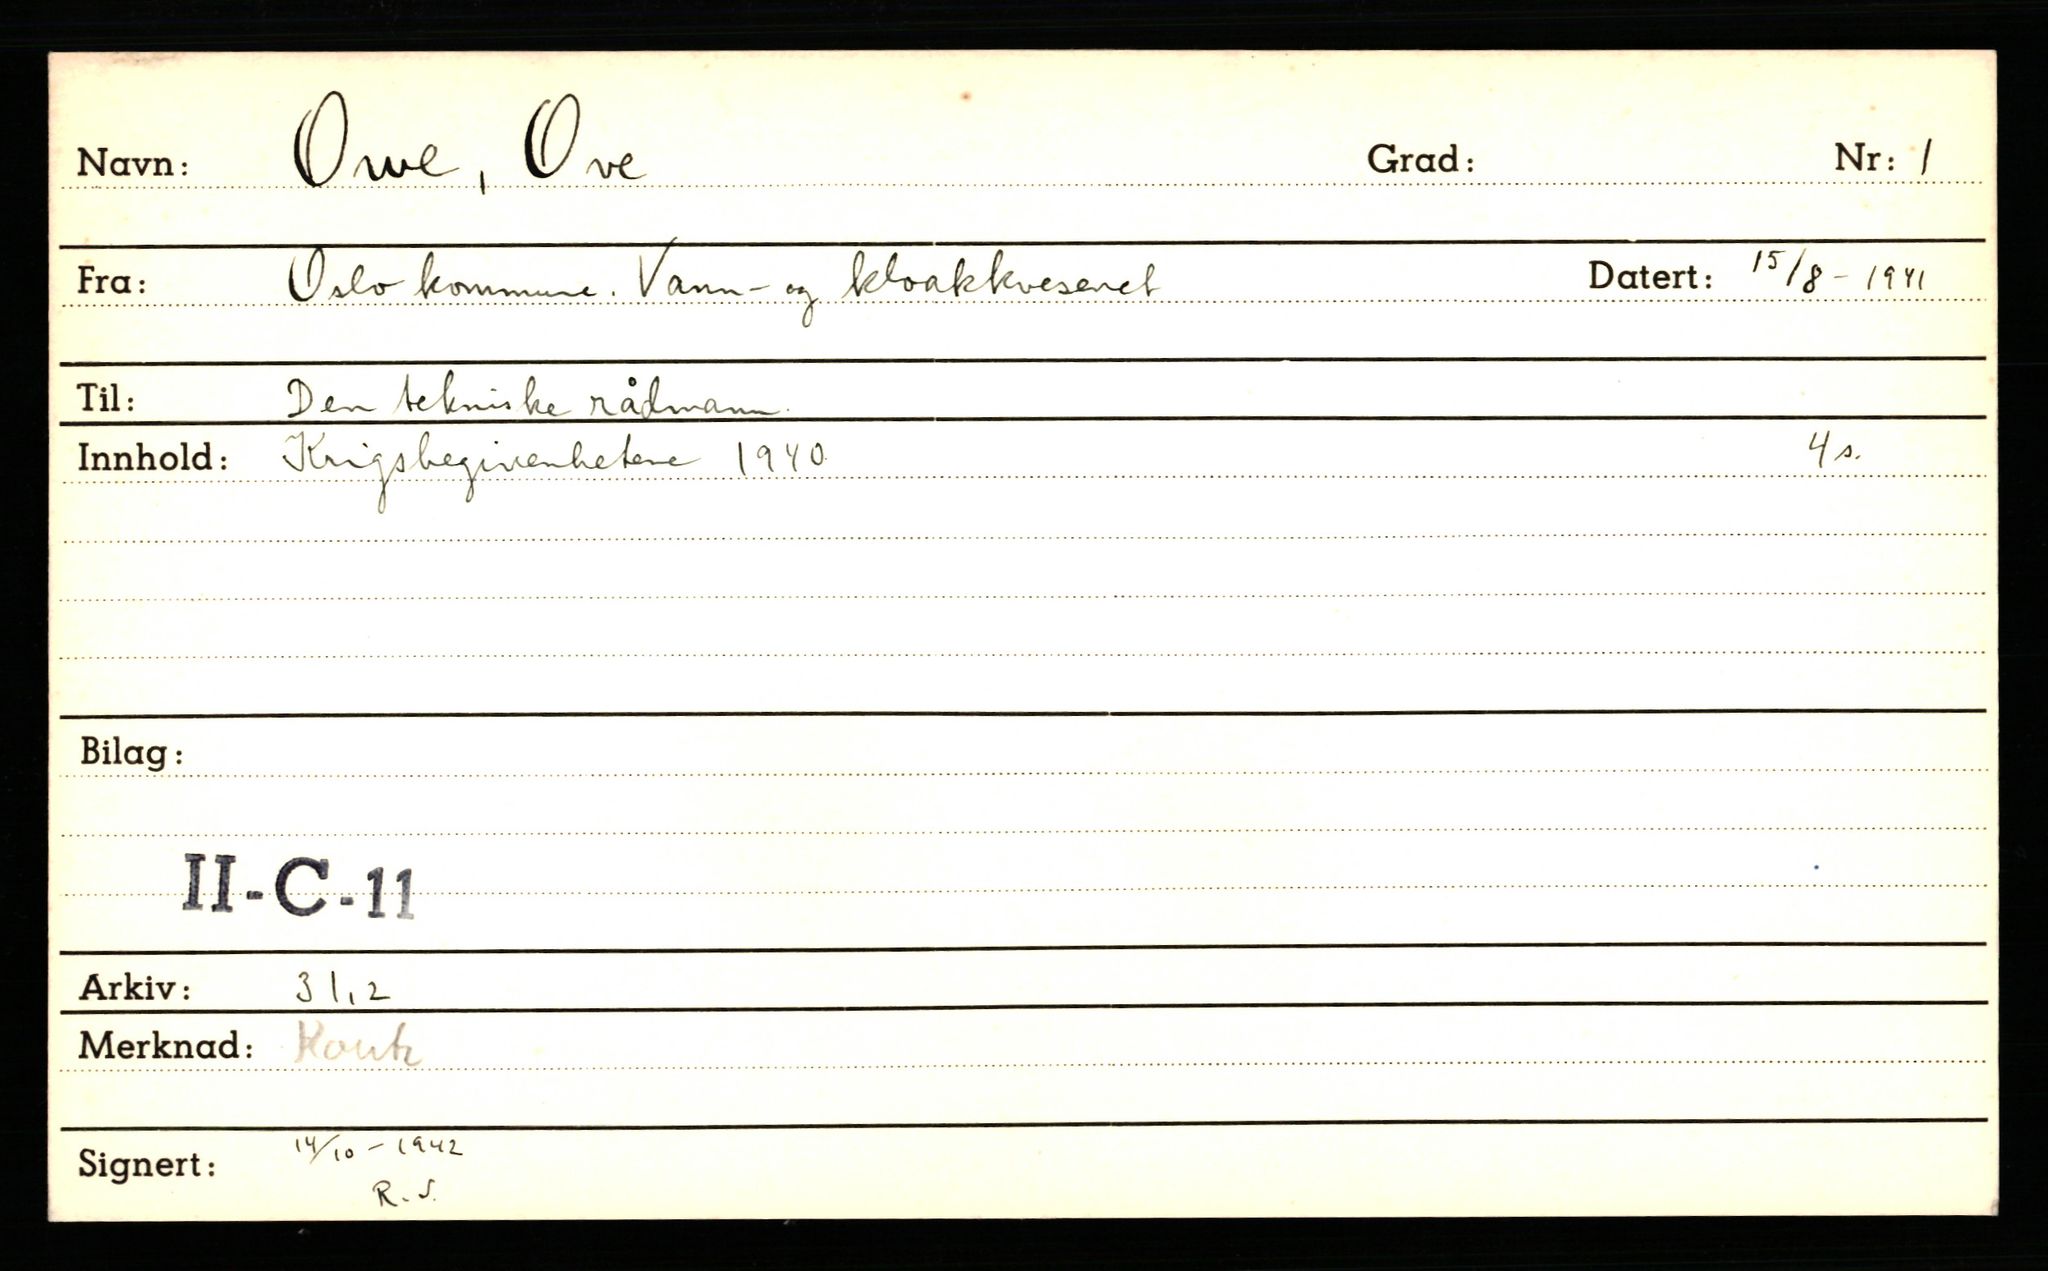 Navn: Owe, Ove Grad: Nr: 1
Fra: Oslo kommune. Vann- og kloakkvesenet Datert: 15/8-1941
Til: Den tekniske rådmann.
Innhold: Krigsbegivenhetene 1940. 4 s.
Bilag:
II-C-11
Arkiv: 31,2
Merknad:
Signert: 14/10-1942
R.S.